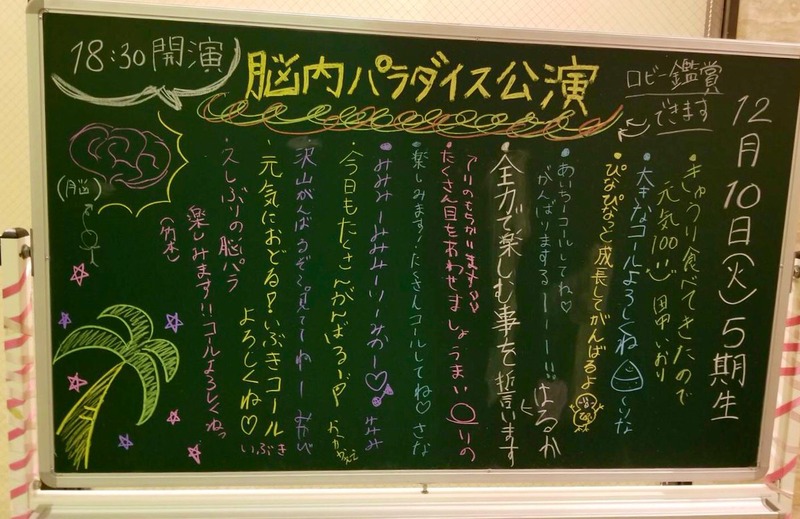 18:30開演
脳内パラダイス公演
ロビー鑑賞
できます
12月10日(火)5期生
・きゅうり食べてきたので
元気100%
・大きなコールよろしくね
・ぴなぴなっと成長してがんばるよ
・あいちーコールしてね♡
がんばりまするーーーー!!
・全力で楽しむ事を誓います
はるか
たくさん目をあわせましょうまい
りの
・楽しみます!たくさんコールしてね♡さな
・みみみーみみみーりーみかー♡
・今日もたくさんがんばるぞ!
・沢山がんばるぞ〜見ててねー
・元気におどる!いぶきコール
よろしくね♡
いぶき
・久しぶりの脳パラ
楽しみます!!コールよろしくねっ
(脳)